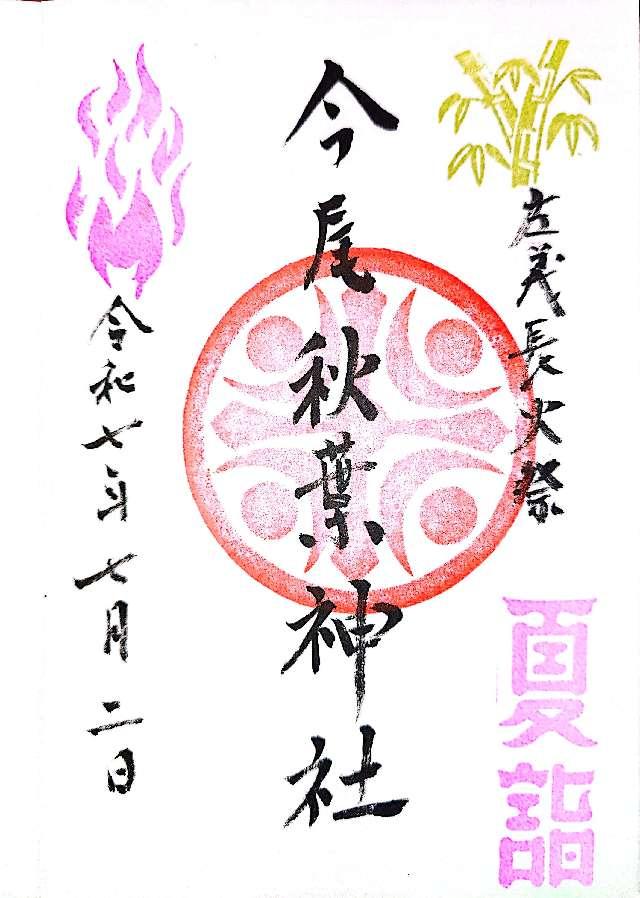 左義長火祭
夏詣
今尾秋葉神社
令和七年七月二日